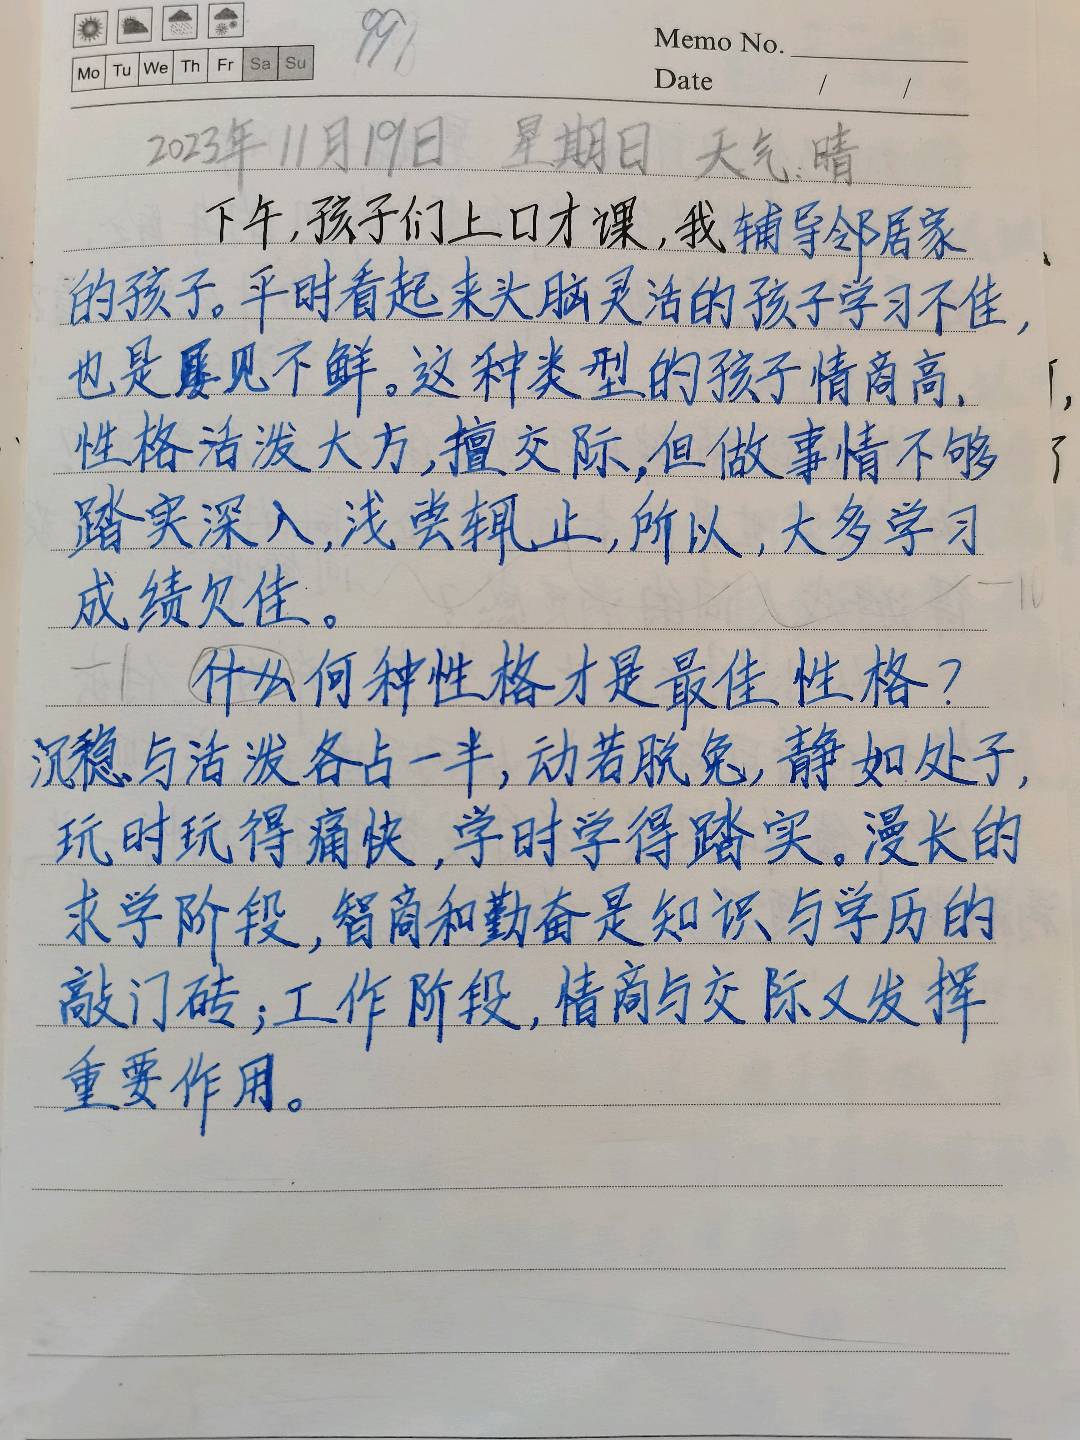 991
Memo No.
Mo Tu We Th Fr Sa Su
Date / /
2023年11月19日 星期日 天气:晴
下午,孩子们上口才课,我辅导邻居家
的孩子。平时看起来头脑灵活的孩子学习不佳,
也是屡见不鲜。这种类型的孩子情商高,
性格活泼大方,擅交际,但做事情不够
踏实深入,浅尝辄止,所以,大多学习
成绩欠佳。
什么何种性格才是最佳性格?
沉稳与活泼各占一半,动若脱兔,静如处子,
玩时玩得痛快,学时学得踏实。漫长的
求学阶段,智商和勤奋是知识与学历的
敲门砖;工作阶段,情商与交际又发挥
重要作用。